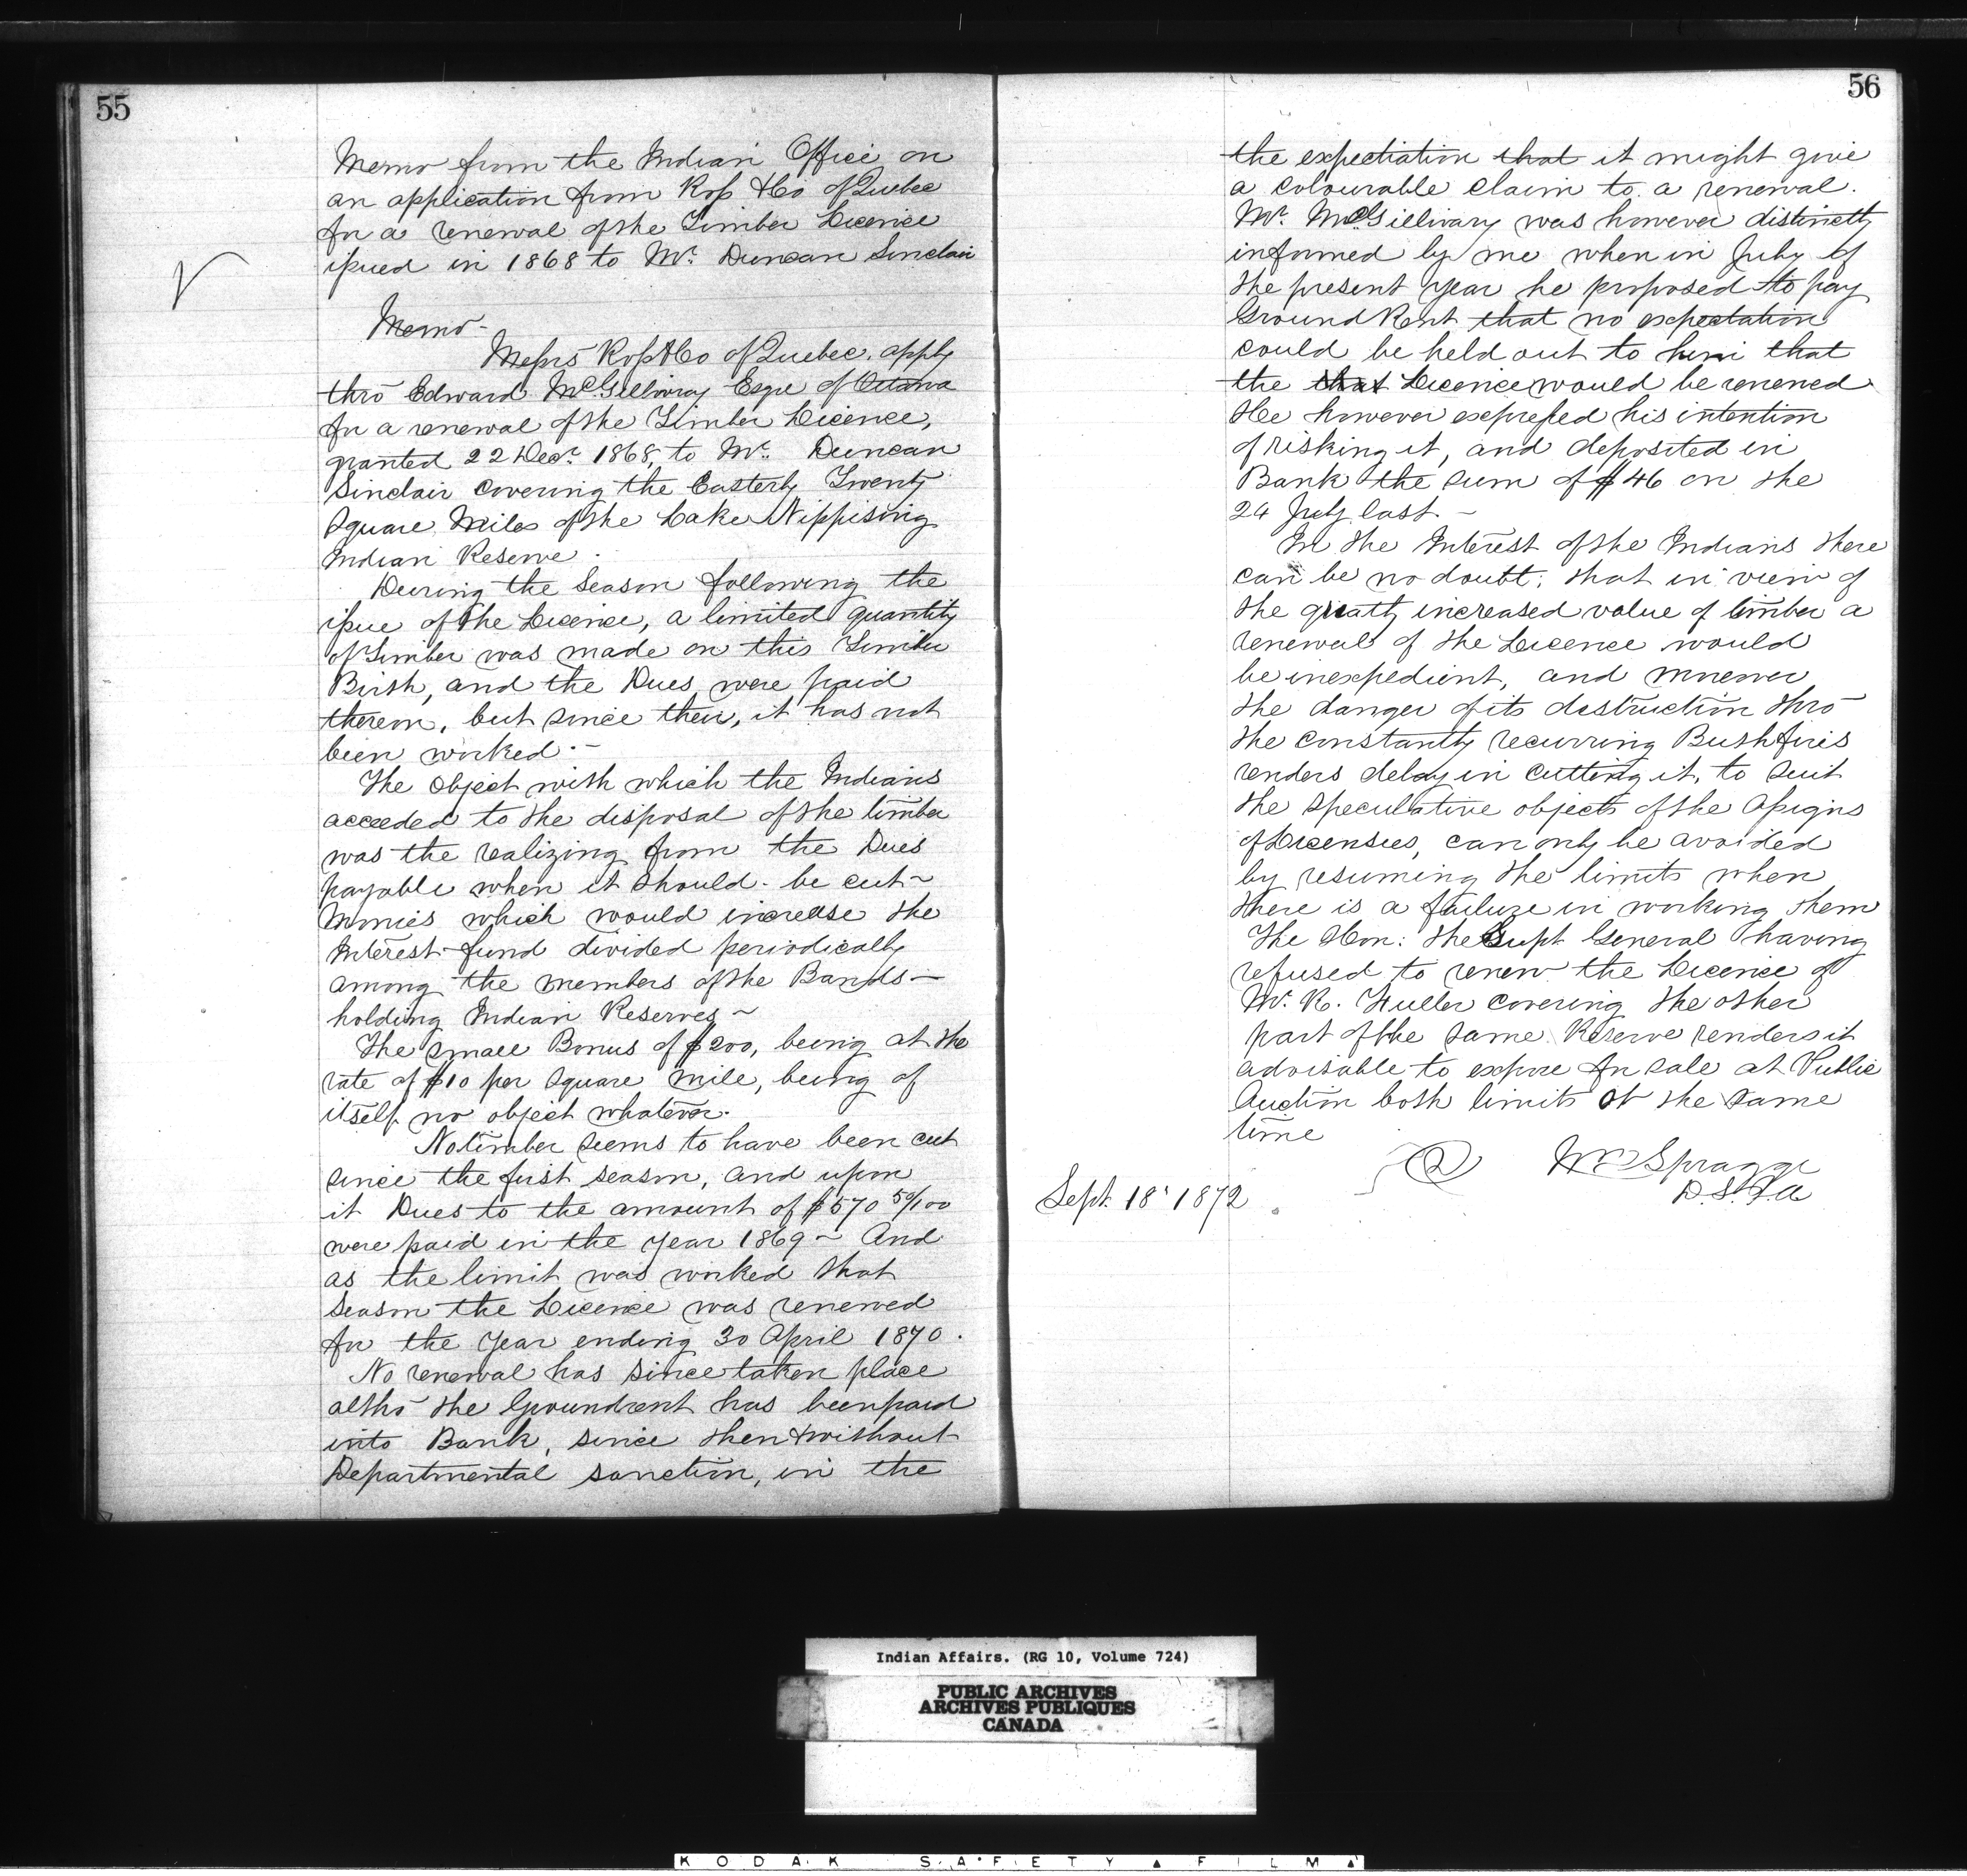 55
Memo from the Indian Office on
an application from Ross & Co of Quebec
for a renewal of the Timber Licence
issued in 1868 to Mr. Duncan Sinclair
Memo-
Messrs Ross & Co of Quebec, apply
thro Edward McGillivray Esqre of Ottawa
for a renewal of the Timber Licence,
granted 22 Decr. 1868, to Mr. Duncan
Sinclair covering the Easterly Twenty
Square Miles of the Lake Nippising
Indian Reserve.
During the Season following the
issue of the Licence, a limited quantity
of Timber was made on this Timber
Birth, and the Dues were paid
thereon, but since then, it has not
been worked.-
The object with which the Indians
acceeded to the disposal of the timber
was the realizing from the Dues
payable when it should be cut~
Monies which would increase the
Interest fund divided periodically
among the members of the Bands—
holding Indian Reserves~
The small Bonus of $200, being at the
rate of $10 per Square Mile, being of
itself no object whatever.
No timber seems to have been cut
since the first season, and upon
it Dues to the amount of $570 50/100
were paid in the year 1869~ And
as the limit was worked that
Season the Licence was renewed
for the Year ending 30 April 1870.
No renewal has since taken place
altho the Groundrent has been paid
into Bank, since then & without
Departmental sanction, in the
56
the expectiation that it might give
a colourable claim to a renewal.
Mr. McGillivary was however distinctly
informed by me when in July of
the present year he proposed to pay
Ground Rent that no expectation
could be held out to him that
the that Licence would be renewed
He however expressed his intention
of risking it, and deposited in
Bank the sum of $46 on the
24 July last.—
In the Interest of the Indians there
can be no doubt, that in view of
the greatly increased value of timber a
renewal of the Licence would
be inexpedient, and moreover
the danger of its destruction thro
the constantly recurring Bush fires
renders delay in cutting it, to suit
the speculative objects of the Assigns
of Licensees, can only be avoided
by resuming the limits when
there is a failure in working them
The Hon: the Supt General having
refused to renew the Licence of
Mr. R. Fuller covering the other
part of the same Reserve renders it
advisable to expose for sale at Public
Auction both limits at the same
time
Wm Spragge
D.S.I.A
Sept. 18' 1872
Indian Affairs. (RG 10, Volume 724)
PUBLIC ARCHIVES
ARCHIVES PUBLIQUES
CANADA
KODAK SAFETY ▲ FILM ▲